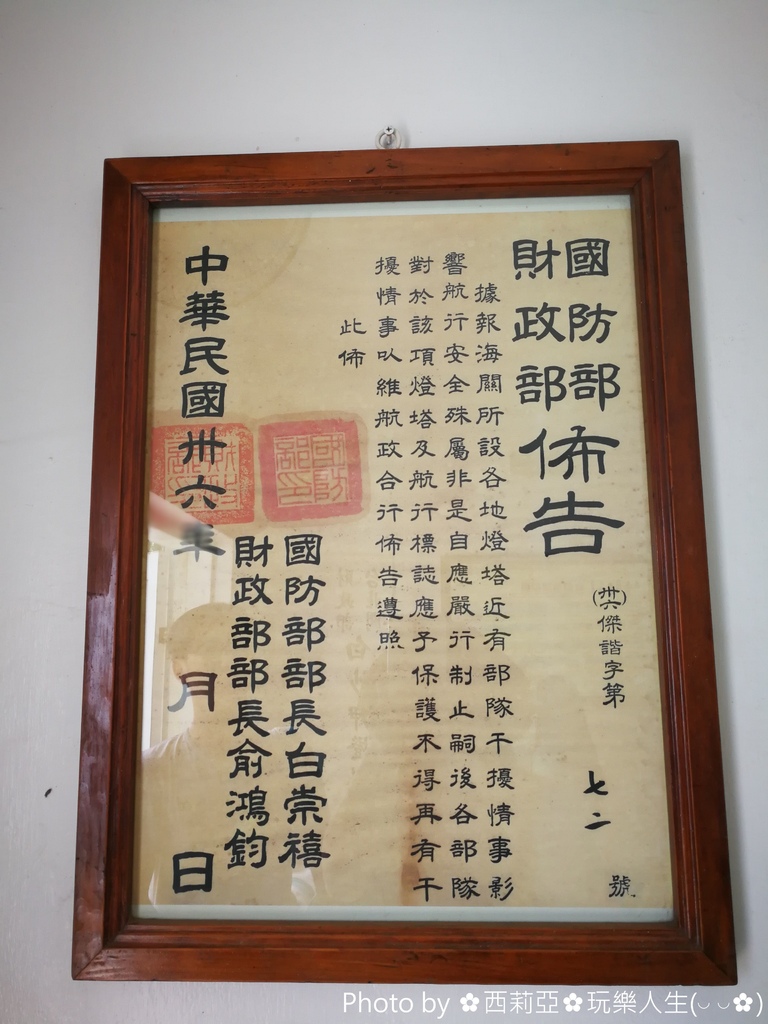 國防部
財政部
佈告
(卅六)傑諧字第 七二 號
據報海關所設各地燈塔近有部隊干擾情事影
響航行安全殊屬非是自應嚴行制止嗣後各部隊
對於該項燈塔及航行標誌應予保護不得再有干
擾情事以維航政合行佈告遵照
此佈
國防部部長白崇禧
財政部部長俞鴻鈞
中華民國卅六年 月 日
國防部印
財政部印
Photo by ✿西莉亞✿玩樂人生(◡ ◡✿)